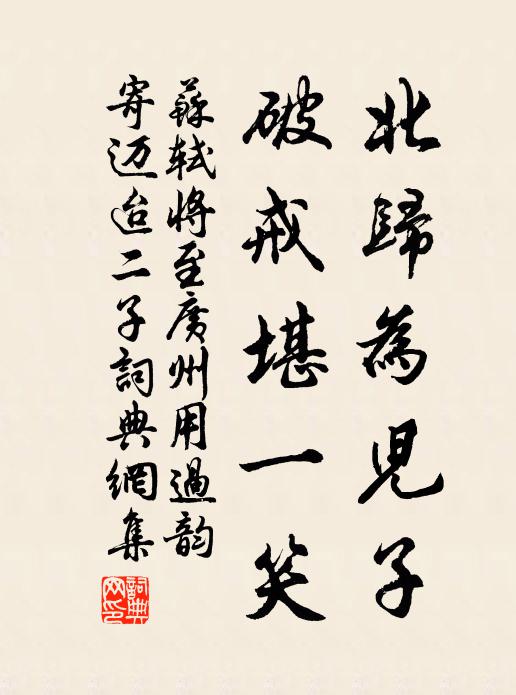 北歸為兒子
破戒堪一笑
蘇軾將至廣州用過韵
寄迈迨二子詞典網集
詞典網印